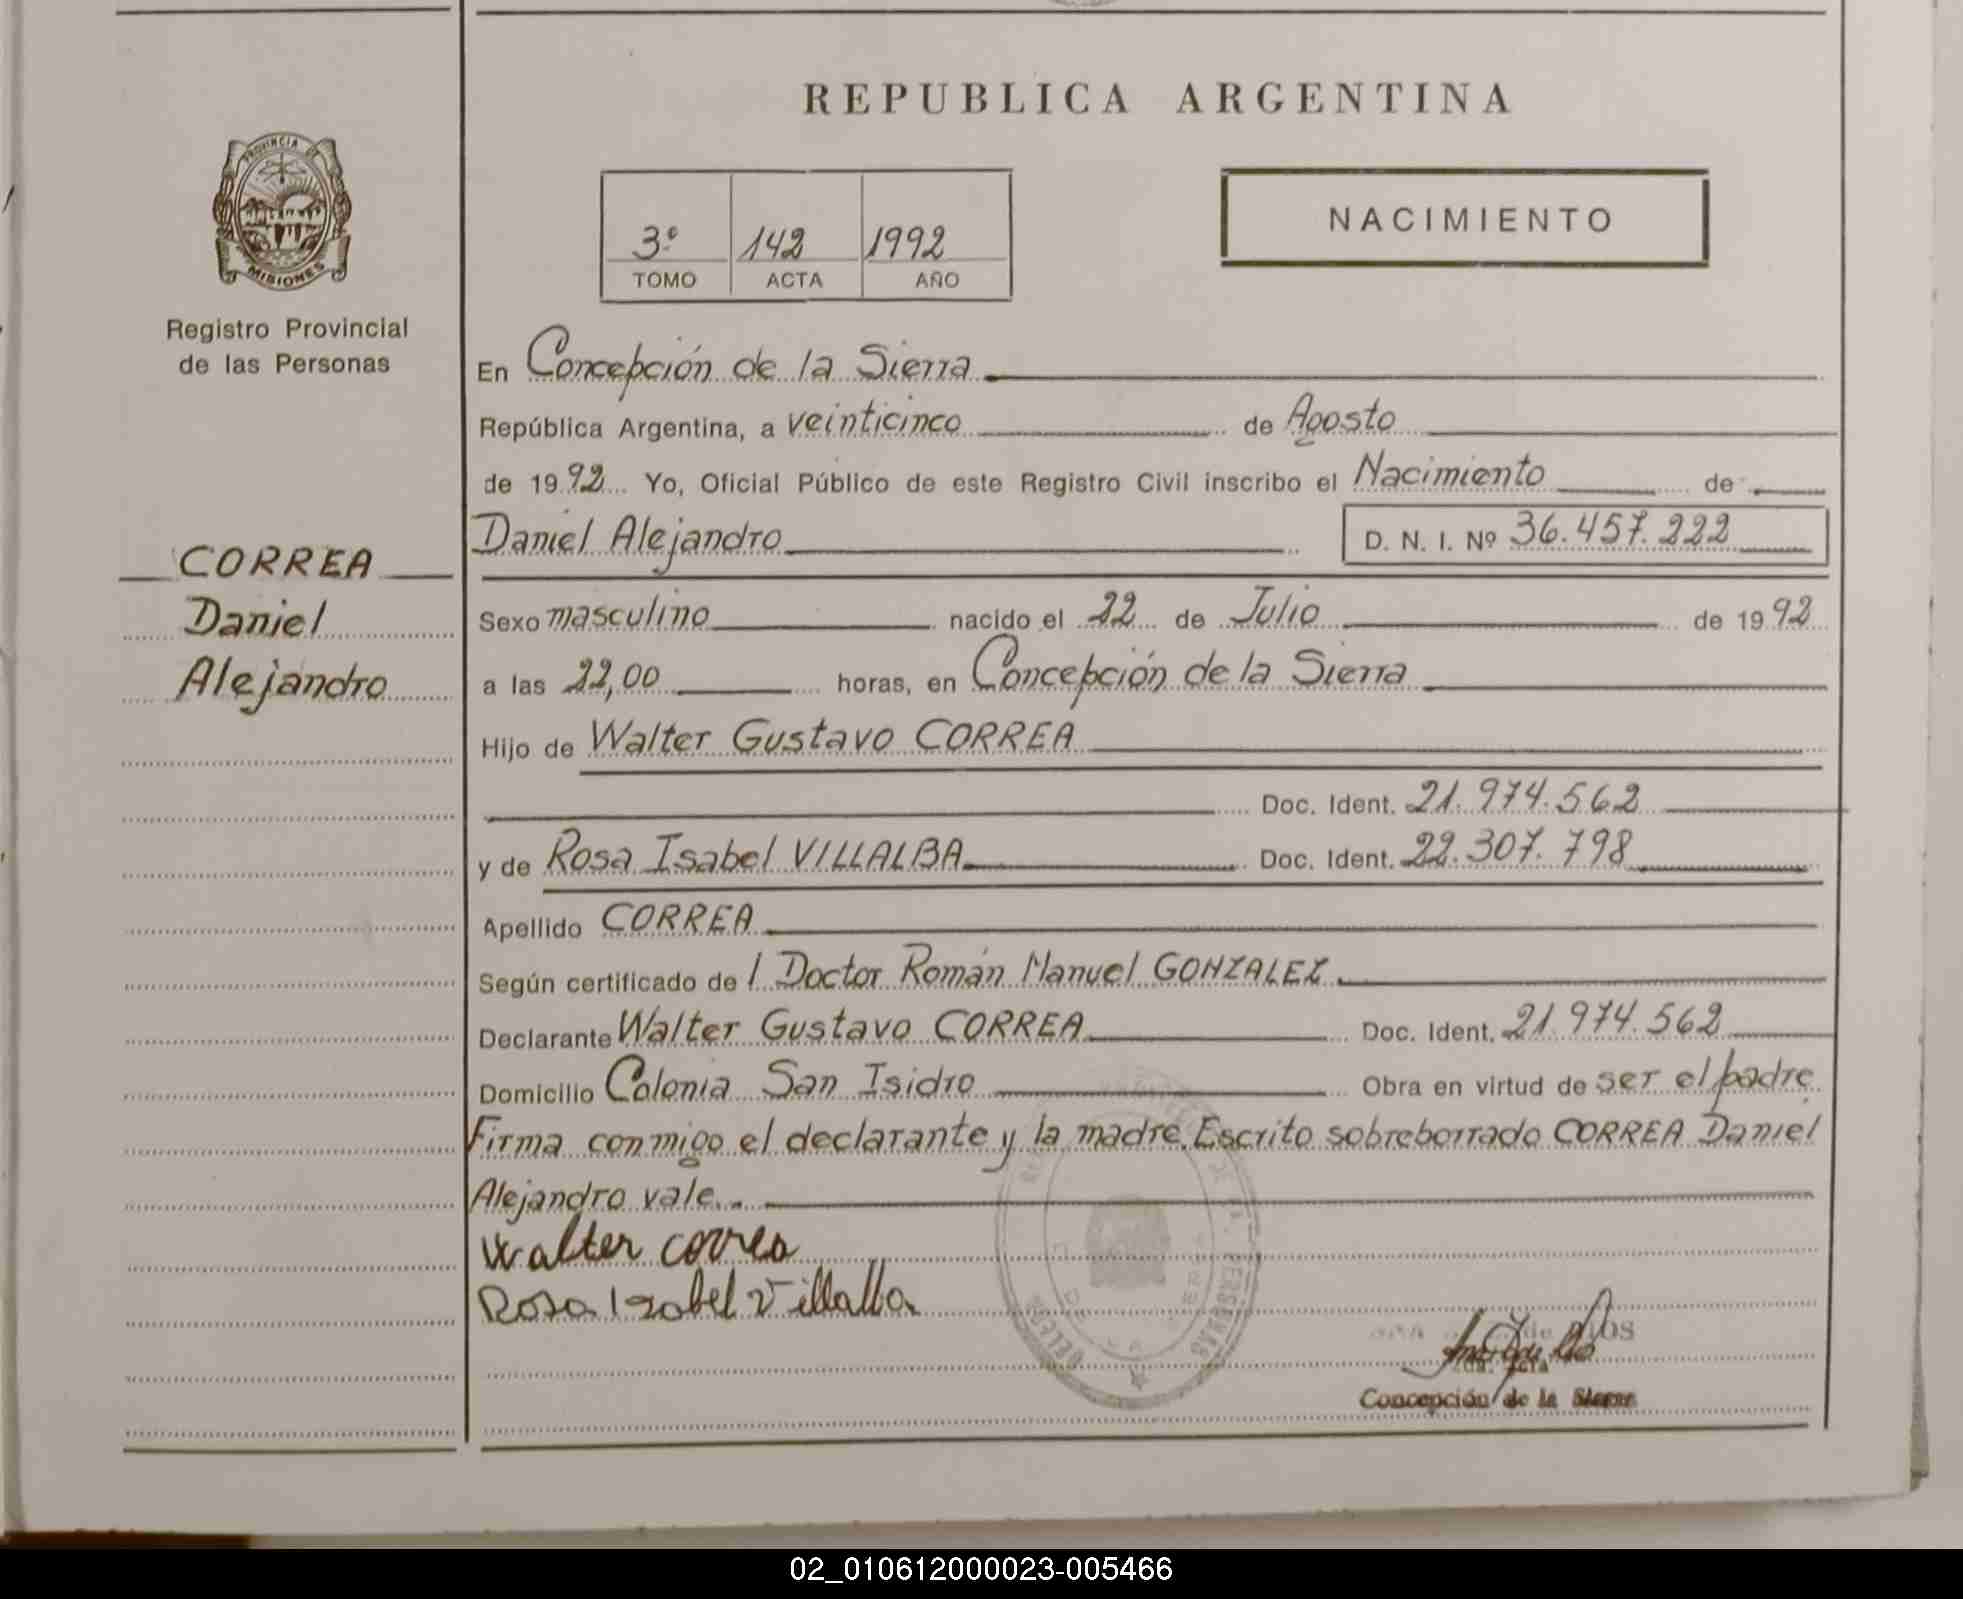 REPUBLICA ARGENTINA
PROVINCIA DE
MISIONES
Registro Provincial
de las Personas
3º 142 1992
TOMO ACTA AÑO
NACIMIENTO
CORREA
Daniel
Alejandro
En Concepción de la Sierra
República Argentina, a veinticinco de Agosto
de 1992 Yo, Oficial Público de este Registro Civil inscribo el Nacimiento de
Daniel Alejandro D. N. I. Nº 36.457.222
Sexo masculino nacido el 22 de Julio de 1992
a las 22,00 horas, en Concepción de la Sierra
Hijo de Walter Gustavo CORREA
Doc. Ident. 21.974.562
y de Rosa Isabel VILLALBA Doc. Ident. 22.307.798
Apellido CORREA
Según certificado de l Doctor Román Manuel GONZALEZ
Declarante Walter Gustavo CORREA Doc. Ident. 21.974.562
Domicilio Colonia San Isidro Obra en virtud de ser el padre
Firma conmigo el declarante y la madre. Escrito sobreborrado CORREA Daniel
Alejandro vale..
Walter correa
Rosa Isabel Villalba
DE LAS PERSONAS
de RIOS
Concepción de la Sierra
02_010612000023-005466